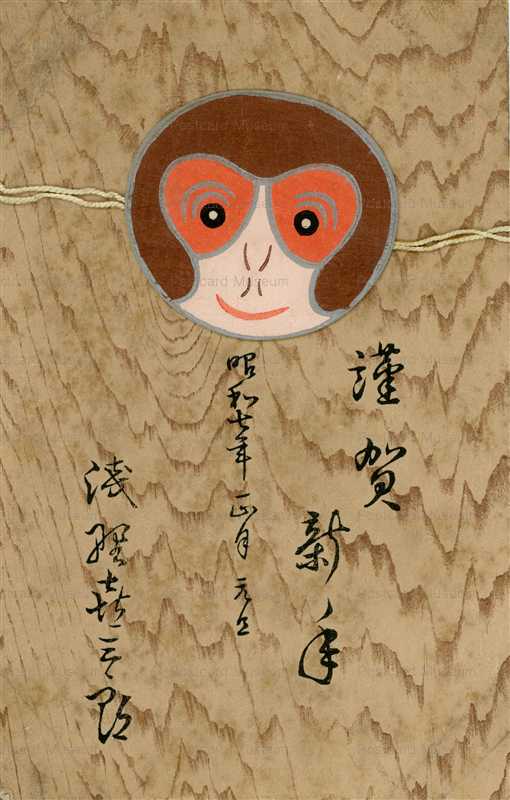 謹賀
新年
昭和七年 一正月 元旦
浅野喜三郎
Postcard Museum